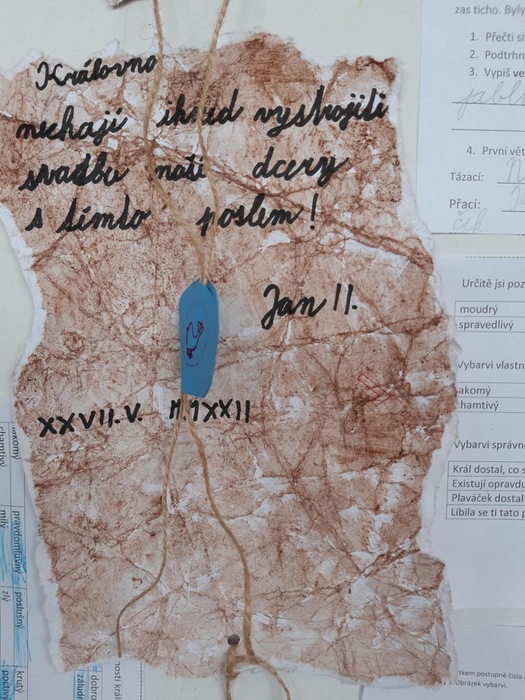 Královno
nechají ihned vystrojiti
svadbu naší dcery
s tímto poslem!
Jan II.
XXVII.V. M.1XXII
zas ticho. Byly
1. Přečti si
2. Podtrhn
3. Vypiš ve
4. První vět
Tázací:
Přací:
Určitě jsi poz
moudrý
spravedlivý
Vybarvi vlastn
akomý
chamtivý
Vybarvi správn
Král dostal, co s
Existují opravdu
Plaváček dostal
Líbila se ti tato p
tkem postupně čísla
y 3. Obrázek vybarvi.
lakomý
chamtivý
pravdomluvný
milý
poslušný
zlý
krutý
poctivý
nosti král
dobro
záludn